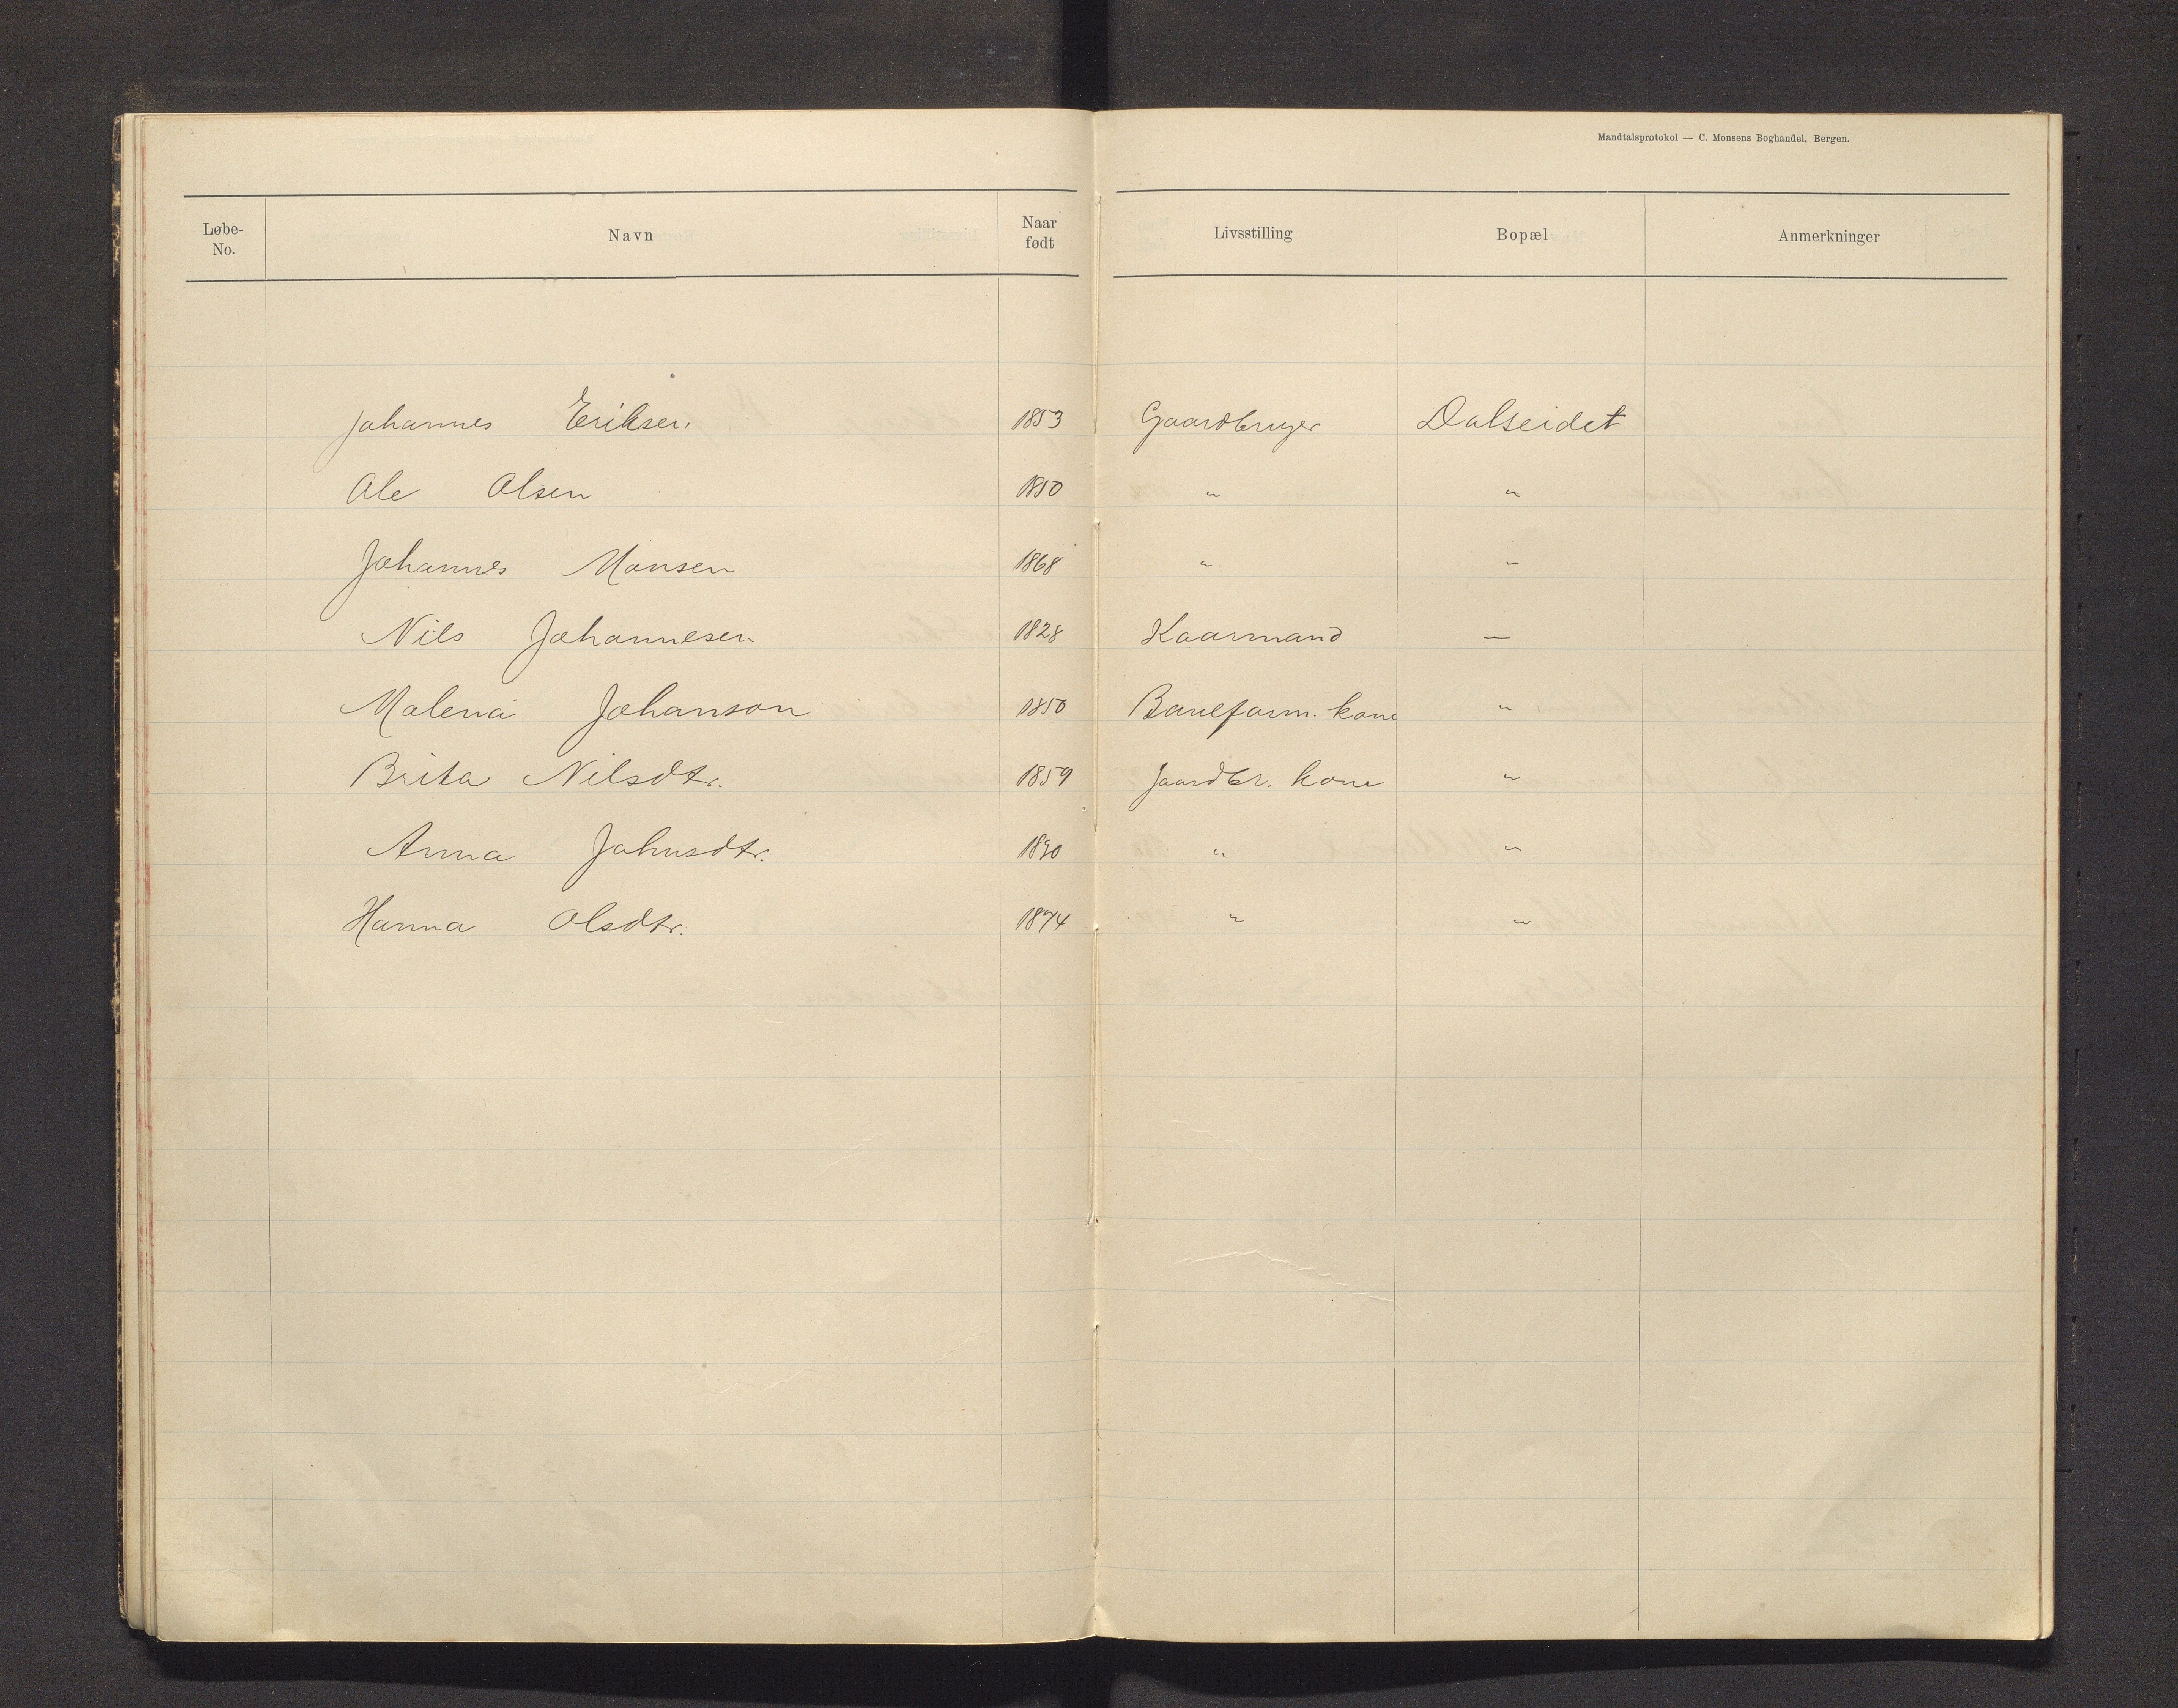 Mandtalsprotokol — C. Monsens Boghandel, Bergen.
Løbe-No. Navn Naar født Livsstilling Bopæl Anmerkninger
Johannes Eriksen. 1853 Gaardbruger Dalseidet
Ole Olsen 1850 " "
Johannes Monsen 1868 " "
Nils Johannesen 1828 Kaarmand —
Malena Johanson 1850 Baneform. kone "
Brita Nilsdtr. 1859 Gaardbr. kone "
Anna Johnsdtr. " "
Hanna Olsdtr. 1874 " "